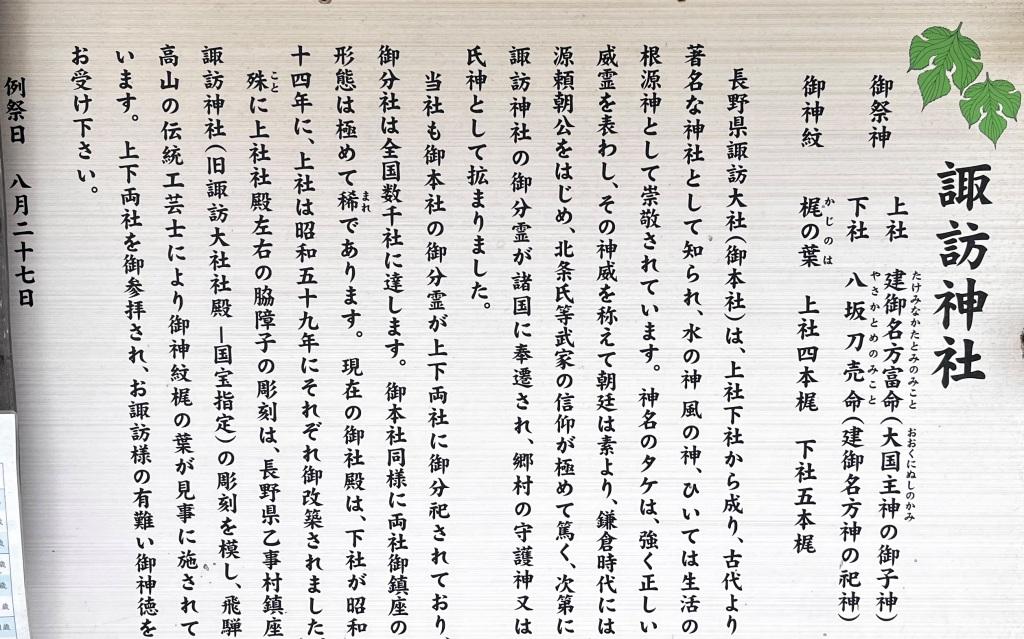 諏訪神社
御祭神　上社　建御名方富命（大国主神の御子神）
たけみなかたとみのみこと　おおくにぬしのかみ
下社　八坂刀売命（建御名方神の祀神）
やさかとめのみこと
御神紋　梶の葉　上社四本梶　下社五本梶
かじのは
長野県諏訪大社（御本社）は、上社下社から成り、古代より
著名な神社として知られ、水の神　風の神、ひいては生活の
根源神として崇敬されています。神名のタケは、強く正しい
威霊を表わし、その神威を称えて朝廷は素より、鎌倉時代には
源頼朝公をはじめ、北条氏等武家の信仰が極めて篤く、次第に
諏訪神社の御分霊が諸国に奉遷され、郷村の守護神又は
氏神として拡まりました。
当社も御本社の御分霊が上下両社に御分祀されており、
御分社は全国数千社に達します。御本社同様に両社御鎮座の
形態は極めて稀であります。現在の御社殿は、下社が昭和
まれ
十四年に、上社は昭和五十九年にそれぞれ御改築されました。
殊に上社社殿左右の脇障子の彫刻は、長野県乙事村鎮座
こと
諏訪神社（旧諏訪大社社殿—国宝指定）の彫刻を模し、飛騨
高山の伝統工芸士により御神紋梶の葉が見事に施されて
います。上下両社を御参拝され、お諏訪様の有難い御神徳を
お受け下さい。
例祭日　八月二十七日